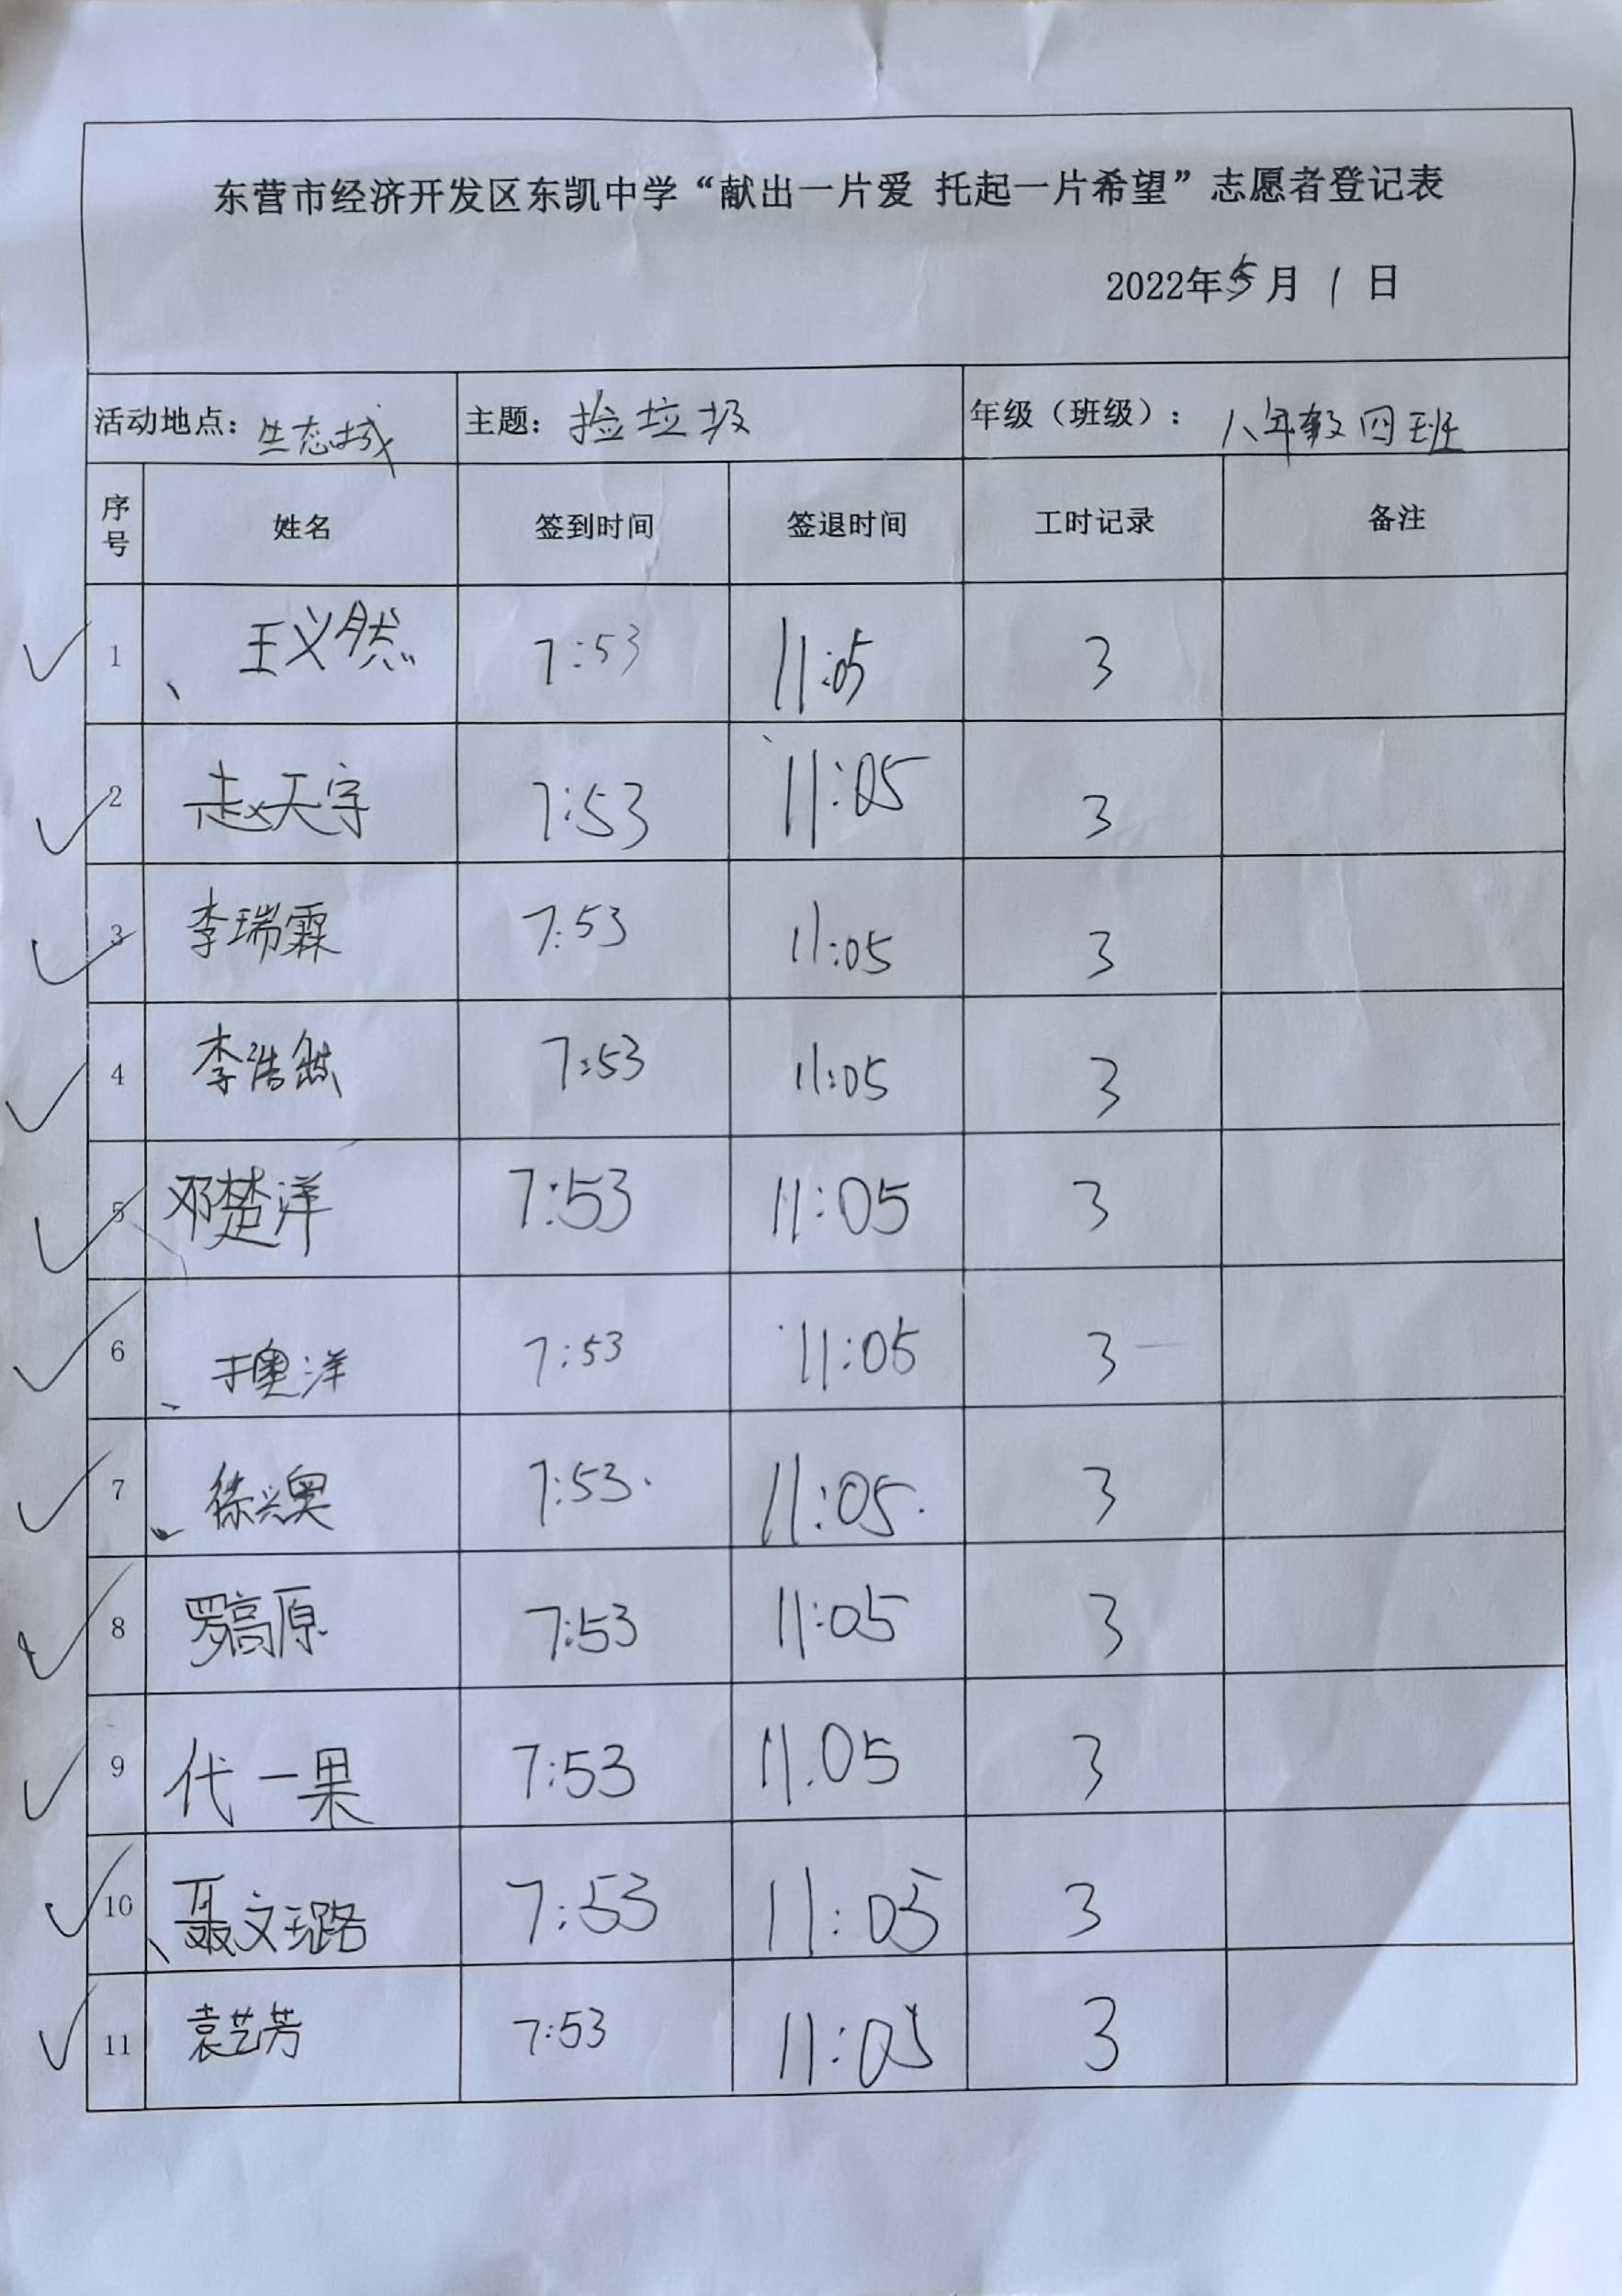 东营市经济开发区东凯中学“献出一片爱 托起一片希望”志愿者登记表
2022年5月1日
活动地点：生态城 主题：捡垃圾 年级（班级）：八年级四班
序号 姓名 签到时间 签退时间 工时记录 备注
1 王义然 7:53 11:05 3
2 赵天宇 7:53 11:05 3
3 李瑞霖 7:53 11:05 3
4 李浩然 7:53 11:05 3
5 邓楚洋 7:53 11:05 3
6 奥洋 7:53 11:05 3
7 徐兴奥 7:53 11:05 3
8 罗高原 7:53 11:05 3
9 代一果 7:53 11.05 3
10 聂文璐 7:53 11:05 3
11 袁艺芳 7:53 11:05 3